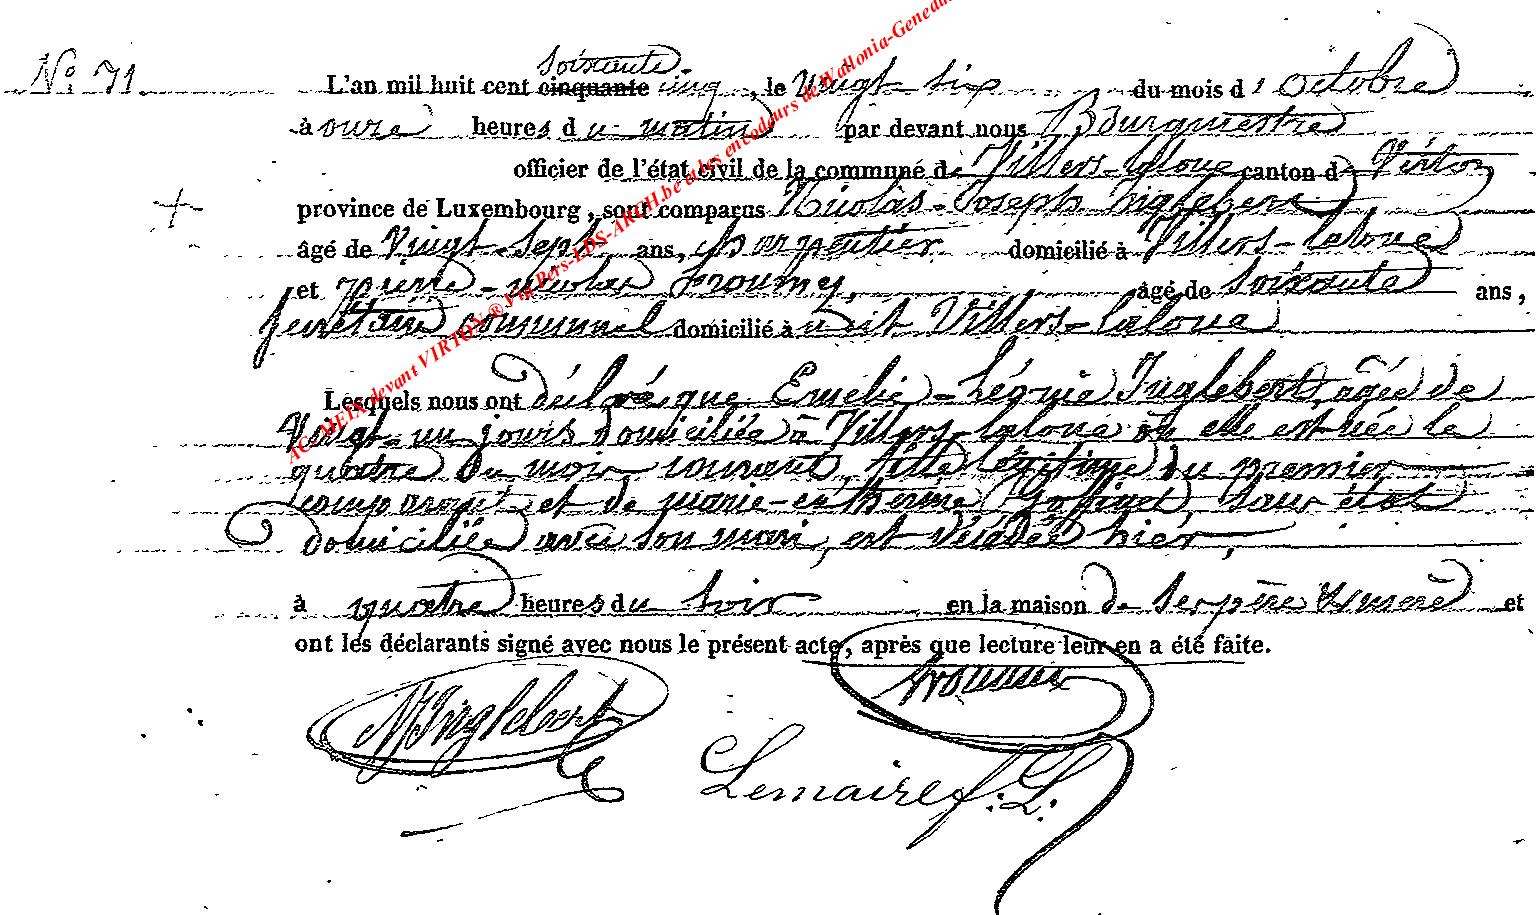 N° 71
soixante
L'an mil huit cent cinquante cinq, le Vingt-six du mois d'octobre
à onze heures du matin par devant nous Bourgmestre
officier de l'état civil de la commune de Villers-laloue canton de Virton
province de Luxembourg, sont comparus Nicolas-Joseph Inglebert
âgé de Vingt-sept ans, charpentier domicilié à Villers-laloue
et Pierre-nicolas froumy, âgé de soixante ans,
secrétaire communal domicilié à udit Villers-laloue
Lesquels nous ont déclaré que Emelie-Léonie Inglebert, âgée de
Vingt-un jours domiciliée à Villers-laloue où elle est née le
quatre du mois courant, fille légitime du premier
comparant et de marie-catherine Goffinet, sans état
domiciliée avec son mari, est décédée hier,
à quatre heures du soir en la maison de ser père & mère et
ont les déclarants signé avec nous le présent acte, après que lecture leur en a été faite.
N Inglebert
froumy
Lemaire f. L.
AC MEIX devant VIRTON ® Vit Pers-LDS-ARCH.be et les encodeurs de Wallonia-Genealo